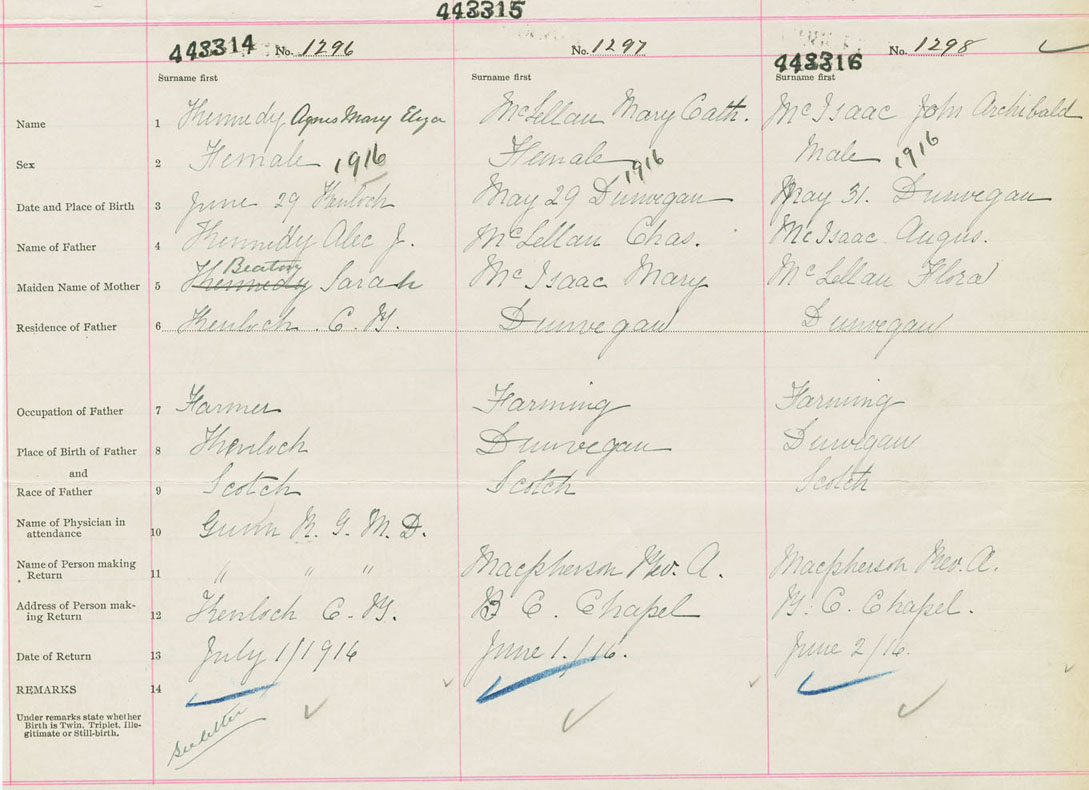 443315
443314 No. 1296 No. 1297 No. 1298
443316
Surname first Surname first Surname first
Name 1 Kennedy Agnes Mary Eliza McLellan Mary Cath. McIsaac John Archibald
Sex 2 Female 1916 Female 1916 Male 1916
Date and Place of Birth 3 June 29 Kenloch May 29 Dunvegan May 31. Dunvegan
Name of Father 4 Kennedy Alec J. McLellan Chas. McIsaac Angus.
Beaton
Maiden Name of Mother 5 Kennedy Sarah McIsaac Mary McLellan Flora
Residence of Father 6 Kenloch. C. B. Dunvegan Dunvegan
Occupation of Father 7 Farmer Farming Farming
Place of Birth of Father 8 Kenloch Dunvegan Dunvegan
and
Race of Father 9 Scotch Scotch Scotch
Name of Physician in
attendance 10 Gunn N. G. M. D.
Name of Person making
Return 11 " " " Macpherson Rev. A. Macpherson Rev. A.
Address of Person mak-
ing Return 12 Kenloch C. B. B C. Chapel B. C. Chapel.
Date of Return 13 July 1/1916 June 1./16. June 2/16.
REMARKS 14
Under remarks state whether
Birth is Twin, Triplet, Ille-
gitimate or Still-birth.
See letter